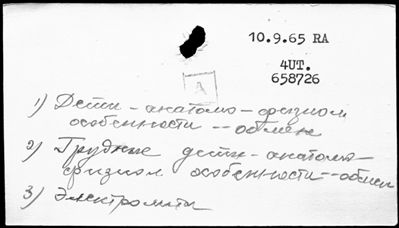 10.9.65 RA
4UT.
658726
A
1) Дети - анатомо - физиол
особенности -- обмен
2) Грудные дети - анатомо-
физиол особенности -- обмен
3) Электролиты